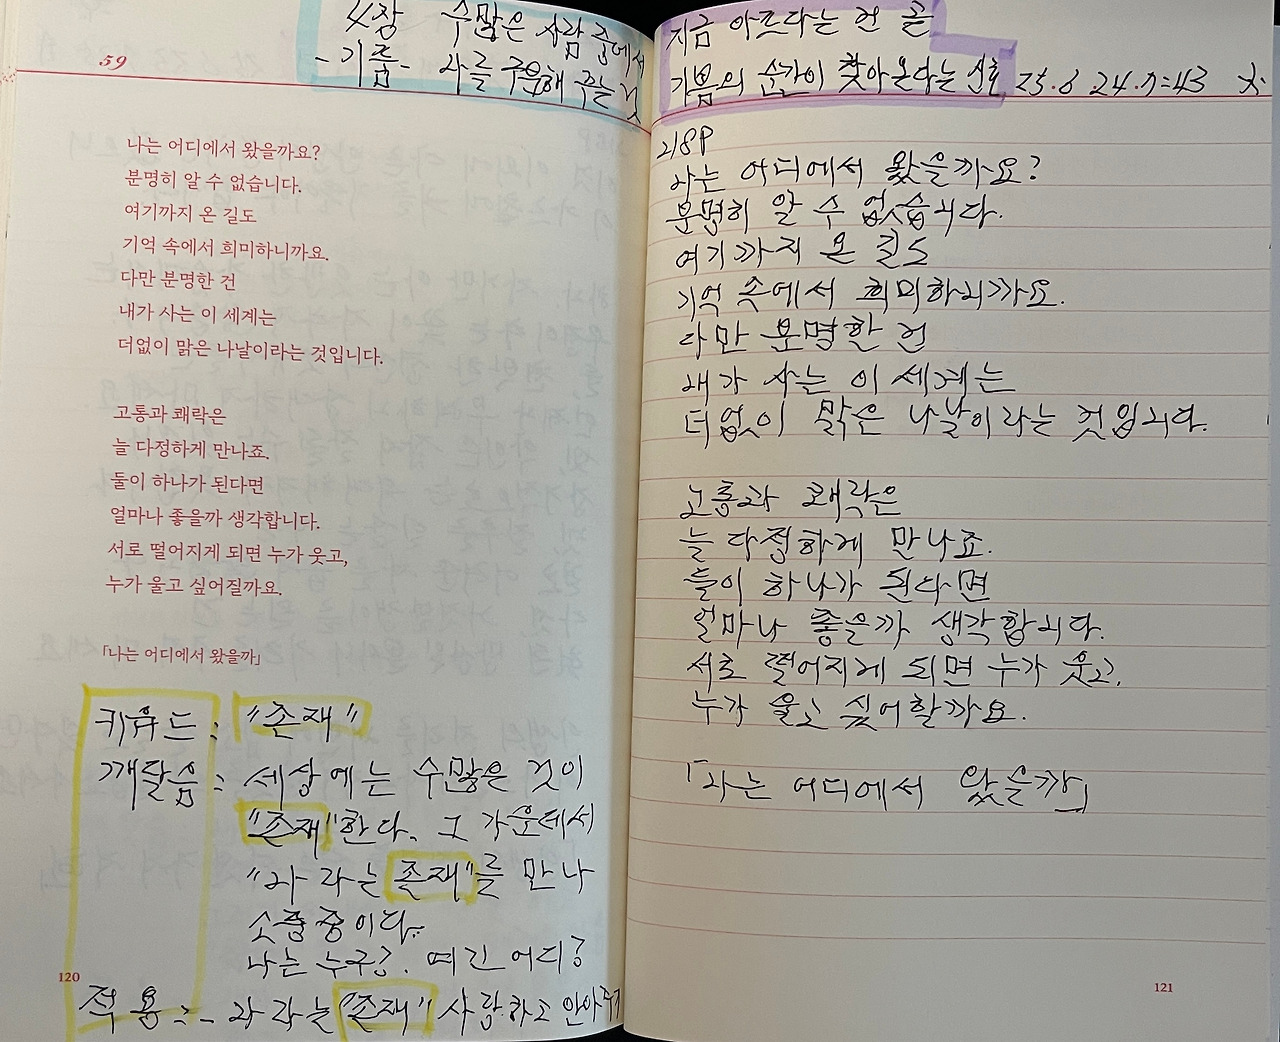 4장 수많은 사람 중에서
- 기쁨 - 나를 구원해 주는 것
59
나는 어디에서 왔을까요?
분명히 알 수 없습니다.
여기까지 온 길도
기억 속에서 희미하니까요.
다만 분명한 건
내가 사는 이 세계는
더없이 맑은 나날이라는 것입니다.
고통과 쾌락은
늘 다정하게 만나죠.
둘이 하나가 된다면
얼마나 좋을까 생각합니다.
서로 떨어지게 되면 누가 웃고,
누가 울고 싶어질까요.
「나는 어디에서 왔을까」
키워드 : "존재"
깨달음 : 세상에는 수많은 것이
"존재"한다. 그 가운데서
"나 라는 존재"를 만나
소풍중이다.
나는 누구?. 여긴 어디?
120
적용 : - 나 라는 "존재" 사랑하고 안아주기
지금 아프다는 건 곧
기쁨의 순간이 찾아온다는 신호 25.6 24.7:43
218P
나는 어디에서 왔을까요?
분명히 알 수 없습니다.
여기까지 온 길도
기억 속에서 희미하니까요.
다만 분명한 건
내가 사는 이 세계는
더없이 맑은 나날이라는 것입니다.
고통과 쾌락은
늘 다정하게 만나죠.
둘이 하나가 된다면
얼마나 좋을까 생각합니다.
서로 떨어지게 되면 누가 웃고,
누가 울고 싶어할까요.
「나는 어디에서 왔을까」
121